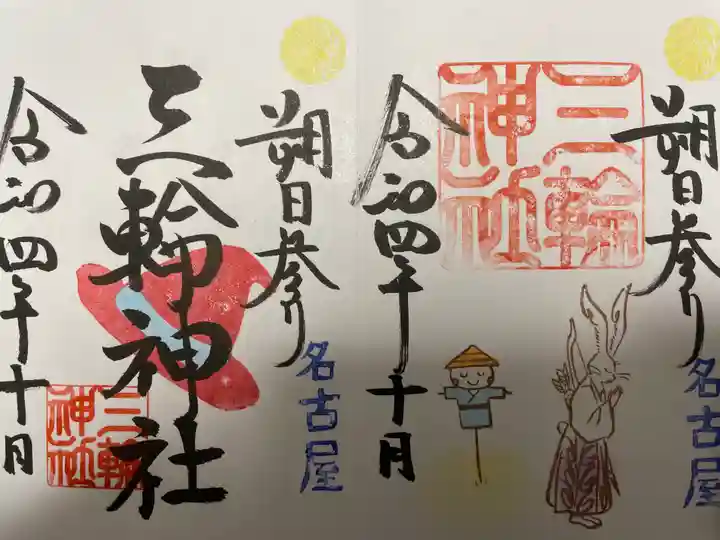 朔日参り
名古屋
三輪神社
令和四年十月
朔日参り
名古屋
三輪神社
三輪神社
令和四年十月